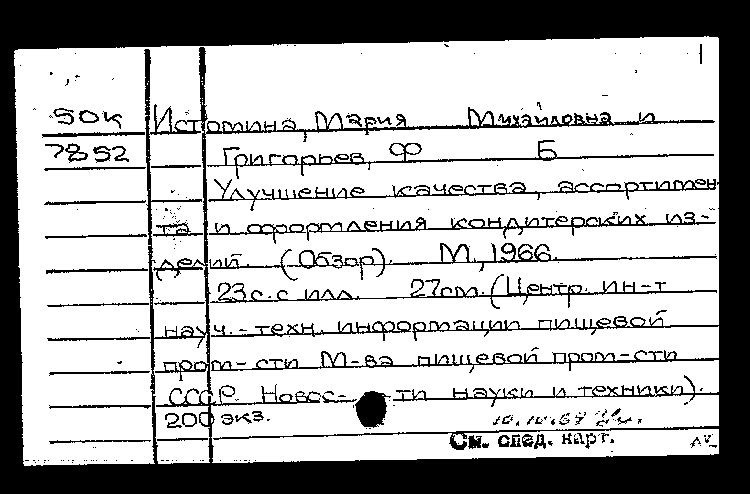 50к Истомина, Мария Михайловна и
7852 Григорьев, Ф Б
Улучшение качества, ассортимен-
та и оформления кондитерских из-
делий. (Обзор). М., 1966.
23с. с илл. 27см. (Центр. ин-т
науч.-техн. информации пищевой
пром-сти М-ва пищевой пром-сти
СССР. Новос-ти науки и техники).
200 экз.
См. след. карт.